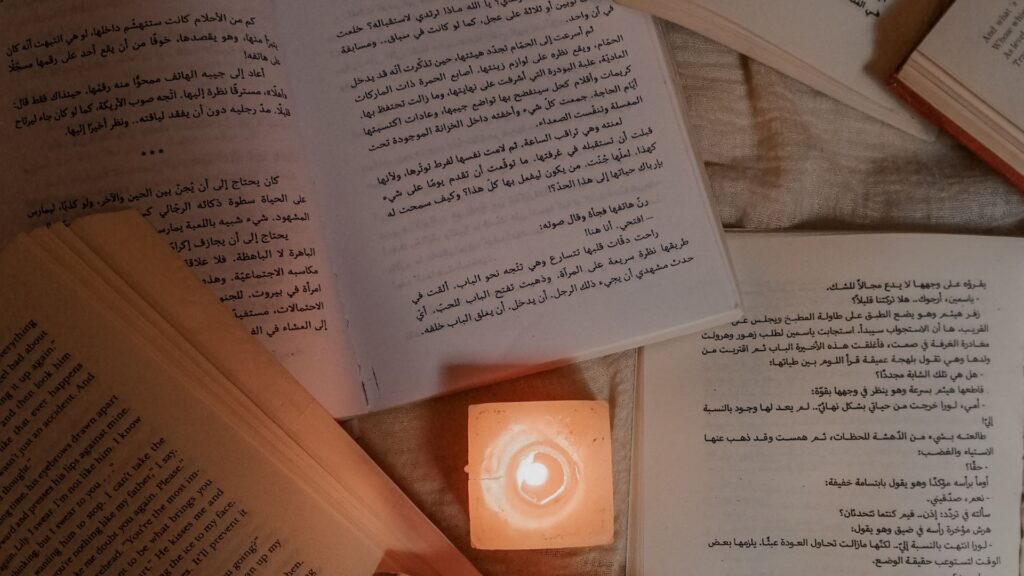 كم من الأحلام كانت ستتهشّم داخلها، لو هي انتبهت أنّه كان
منها، وهو يقصدها، خوفًا من أن يقع أحد على رقمها
على هاتفه!
أعاد إلى جيبه الهاتف ممحوًّا منه رقمها. حينذاك فقط قال:
مسترقًا نظرة إليها. اتجه صوب الأريكة، كما لو كان جاء ليرتاح
قليلًا. مدّ رجليه دون أن يفقد لياقته.. ونظر أخيرًا إليها.
***
كان يحتاج إلى أن يُجنّ بين الحين والآخر، ولو كذبًا، ليمارس
على الحياة سطوة ذكائه الرجّالي
المشهود. شيء شبيه باللعبة
يحتاج إلى أن يجازف
الباهرة لا الباهظة. فلا علاقة
مكاسبه الاجتماعيّة. وهذه
امرأة في بيروت.
الاحتمالات،
إلى العشاء في
يا الله ماذا ترتدي لاستقباله؟ خلعت
أو ثلاثة على عجل، كما لو كانت في سباق.. ومسابقة
في آن واحد.
ثم أسرعت إلى الحمّام تجدّد هيئتها، حين تذكّرت أنّه قد يدخل
الحمّام، ويقع نظره على لوازم زينتها. أصابع الحمرة ذات الماركات
العاديّة، علبة البودرة التي أشرفت على نهايتها، وما زالت تحتفظ بها
أيّام الحاجة. كريمات وأقلام كحل سيفتضح بها تواضع جيبها، وعادات اكتسبتها
جمعت كلّ شيء وأخفته داخل الخزانة الموجودة تحت
المغسلة وتنفّست الصعداء.
لعنته وهي تراقب الساعة. ثم لامت نفسها لفرط توتّرها، ولأنها
قبلت أن تستقبله في غرفتها. ما توقّعت أن تقدم يومًا على شيء
كهذا. لعلّها جُنّت. من يكون ليفعل بها كلّ هذا؟ وكيف سمحت له
بإرباك حياتها إلى هذا الحدّ؟!
رنّ هاتفها فجأة وقال صوته:
ـ افتحي. أنا هنا!
راحت دقّات قلبها تتسارع وهي تتّجه نحو الباب. ألقت في
طريقها نظرة سريعة على المرآة. وذهبت تفتح الباب للحبّ. أيّ
حدث مشهدي أن يجيء ذلك الرجل. أن يدخل. أن يغلق الباب خلفه.
And what's
everything
up again."
and then look him
like that ever happens
just an accident. And
thought."
his eyebrows drawn apart
and presses his lips against mine.
Lily. I swear. I'm not like him. I know
but I swear to you
"You're nothing like my father," I say.
him to stop. I can't take the
make me doubt you again. Please."
"You're the most im-
to be what brings you
the ice to my face.
It'll prevent it
you going?"
up my
then.
يقرؤه على وجهها لا يدع مجالاً للشك.
- ياسمين، أرجوك.. هلا تركتنا قليلاً؟
زفر هيثم وهو يضع الطبق على طاولة المطبخ ويجلس على
القريب. ها أن الاستجواب سيبدأ. استجابت ياسمين لطلب زهور وهرولت
مغادرة الغرفة في صمت، فأغلقت هذه الأخيرة الباب ثم اقتربت من
ولدها وهي تقول بلهجة عميقة قرأ اللوم بين طياتها:
- هل هي تلك الشابة مجددًا؟
قاطعها هيثم بسرعة وهو ينظر في وجهها بقوّة:
- أمي، لورا خرجت من حياتي بشكل نهائيّ.. لم يعد لها وجود بالنسبة
إليّ!
طالعته بشيء من الدّهشة للحظات، ثم همست وقد ذهب عنها
الاستياء والغضب:
- حقًّا؟
أومأ برأسه مؤكدًا وهو يقول بابتسامة خفيفة:
- نعم، صدّقيني.
سألته في تردّد: إذن.. فيم كنتما تتحدثان؟
هرش مؤخرة رأسه في ضيق وهو يقول:
- لورا انتهت بالنسبة إليّ.. لكنّها مازالت تحاول العودة عبثًا. يلزمها بعض
الوقت لتستوعب حقيقة الوضع.